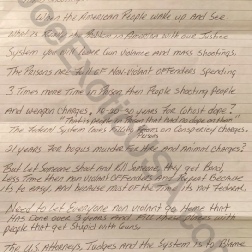 When the American People wake up and See
What is Really the Problem in America with our Justice
System you will lower Gun violence and mass shootings.
The Prisons are full of Nonviolent offenders Spending
3 Times more Time in Prison then People shooting people
And weapon Charges, 10-20 years For Ghost dope?
"That is people for Dope that had no dope on them"
The Federal System loves RICO from on Conspiracy charges.
21 years For bogus murder For Hire and Animal charges?
But let Someone Shoot and Kill Someone, they get Bond,
Less Time then Non violent offenders and Repeat Because
its to easy. And because most of the Time its not Federal.
Need to let Everyone non violent go Home that
Has Done over 3 years and Fill these Prisons with
people that get Stupid with Guns.
The U.S Attorneys, Judges and the System is to Blame